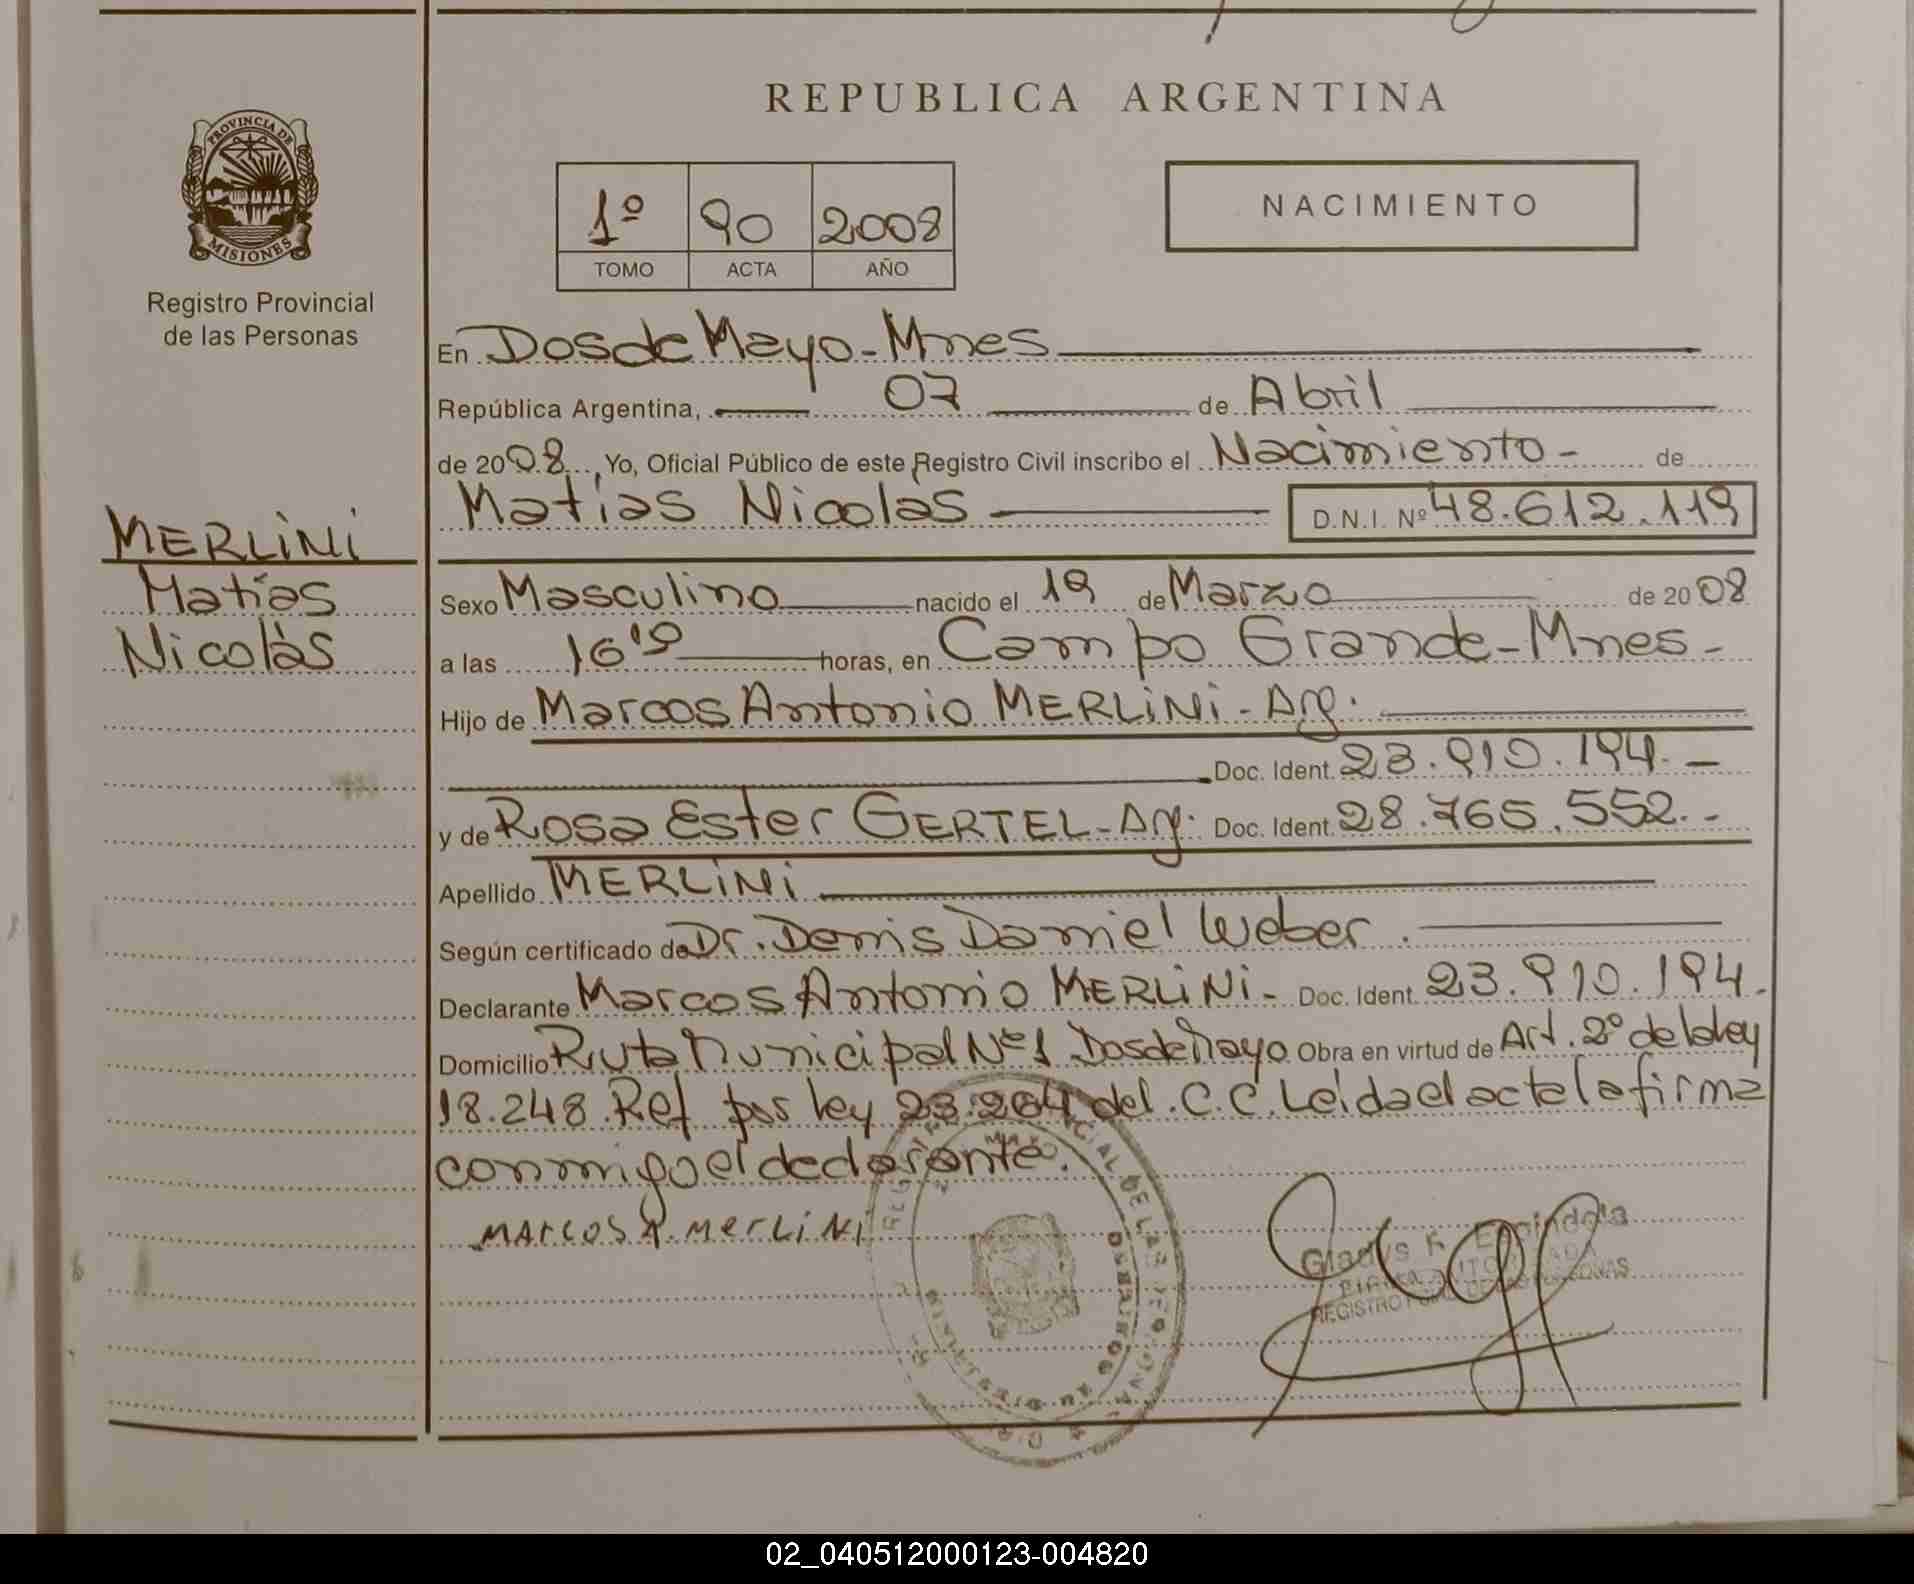 REPUBLICA ARGENTINA
PROVINCIA DE
MISIONES
Registro Provincial
de las Personas
1º 90 2008
TOMO ACTA AÑO
NACIMIENTO
En Dos de Mayo - Mnes
República Argentina, 07 de Abril
de 2008, Yo, Oficial Público de este Registro Civil inscribo el Nacimiento - de
Matías Nicolás D.N.I. Nº 48.612.119
MERLiNi
Matías
Nicolás
Sexo Masculino nacido el 19 de Marzo de 2008
a las 16'19 horas, en Campo Grande - Mnes -
Hijo de Marcos Antonio MERLiNi - Arg.
Doc. Ident. 23.910.194. -
y de Rosa Ester GERTEL - Arg. Doc. Ident. 28.765.552. -
Apellido MERLiNi
Según certificado de Dr. Denis Daniel Weber.
Declarante Marcos Antonio MERLiNi - Doc. Ident. 23.910.194.
Domicilio Ruta Municipal Nº 1 Dos de Mayo Obra en virtud de Art. 2º de la ley
18.248. Ref. por ley 23.264 del C.C. Leída el acta la firma
conmigo el declarante.
MARCOS A. MERLiNi
Gladys Espindola
02_040512000123-004820